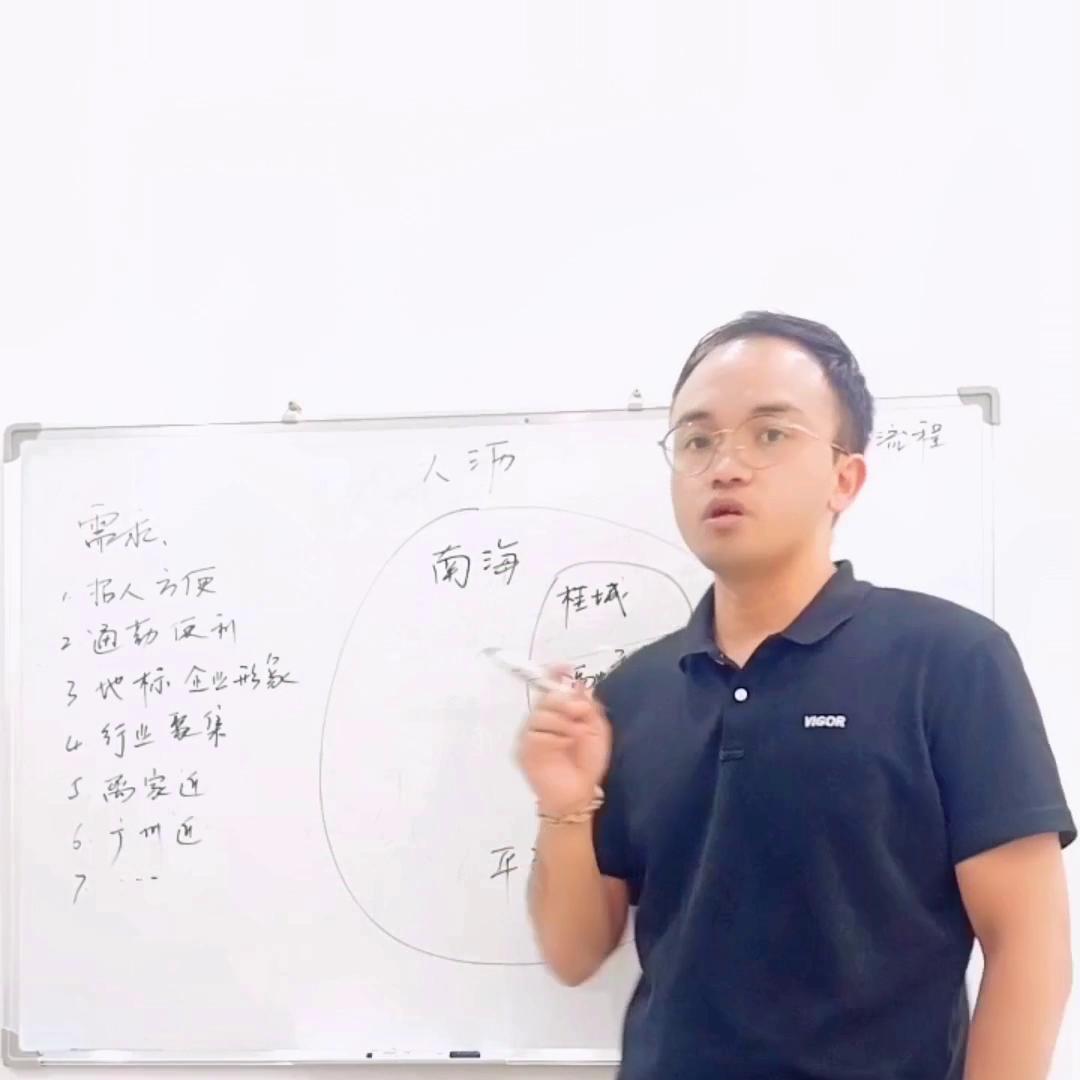 需求、
1. 招人方便
2 通勤便利
3 地标 企业形象
4 行业聚集
5 离家近
6. 广州近
7. ...
人沥
南海
桂城
平
流程
VIGOR